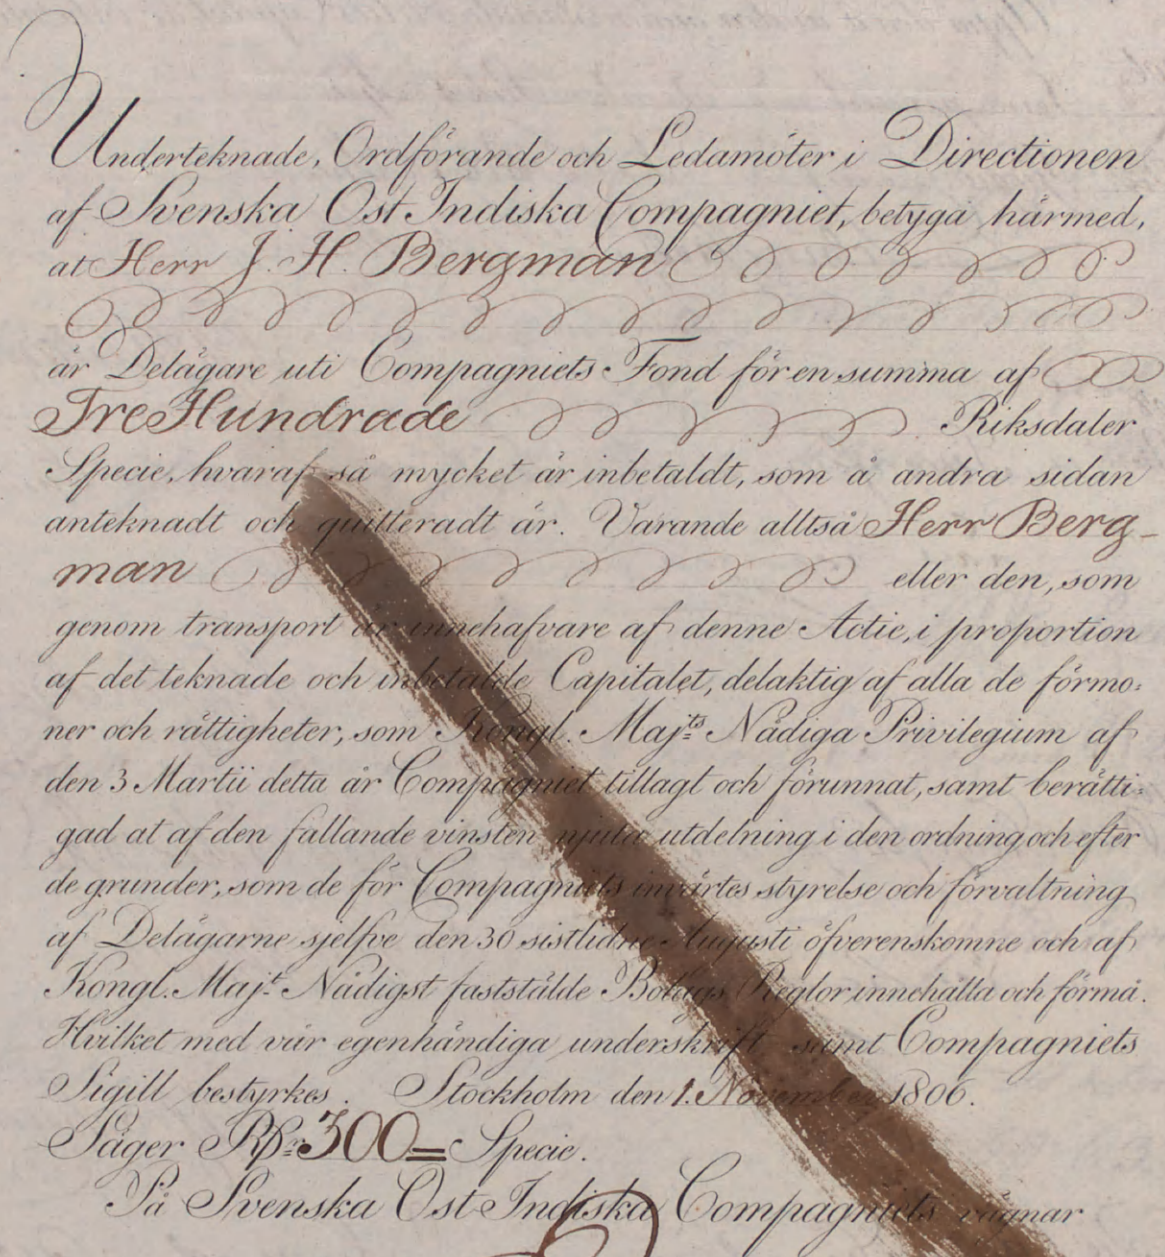 Underteknade, Ordförande och Ledamöter i Directionen
af Svenska Ost Indiska Compagniet, betyga härmed,
at Herr J. H. Bergman
är Delägare uti Compagniets Fond för en summa af
Tre Hundrade Riksdaler
Specie, hvaraf så mycket är inbetaldt, som å andra sidan
anteknadt och quitteradt är. Varande alltså Herr Berg-
man eller den, som
genom transport är innehafvare af denne Actie, i proportion
af det teknade och inbetalde Capitalet, delaktig af alla de förmo:
ner och rättigheter, som Kongl. Maj:ts Nådiga Privilegium af
den 3 Martii detta år Compagniet tillagt och förunnat, samt berätti:
gad at af den fallande vinsten njuta utdelning i den ordning och efter
de grunder, som de för Compagniets invärtes styrelse och förvaltning
af Delägarne sjelfve den 30 sistlidne Augusti öfverenskomne och af
Kongl. Maj:t Nådigst fastställde Bolags Reglor innehålla och förmå.
Hvilket med vår egenhändiga underskrift samt Compagniets
Sigill bestyrkes. Stockholm den 1. November 1806.
Säger Rd:r 300 = Specie.
På Svenska Ost Indiska Compagniets vägnar